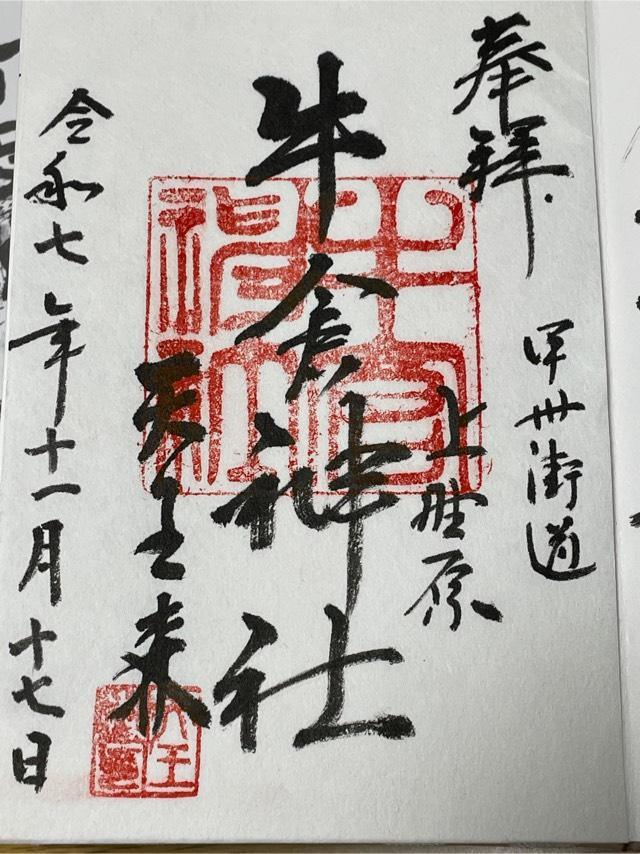 奉拝
甲州街道
上野原
牛倉神社
天王来
令和七年十一月十七日